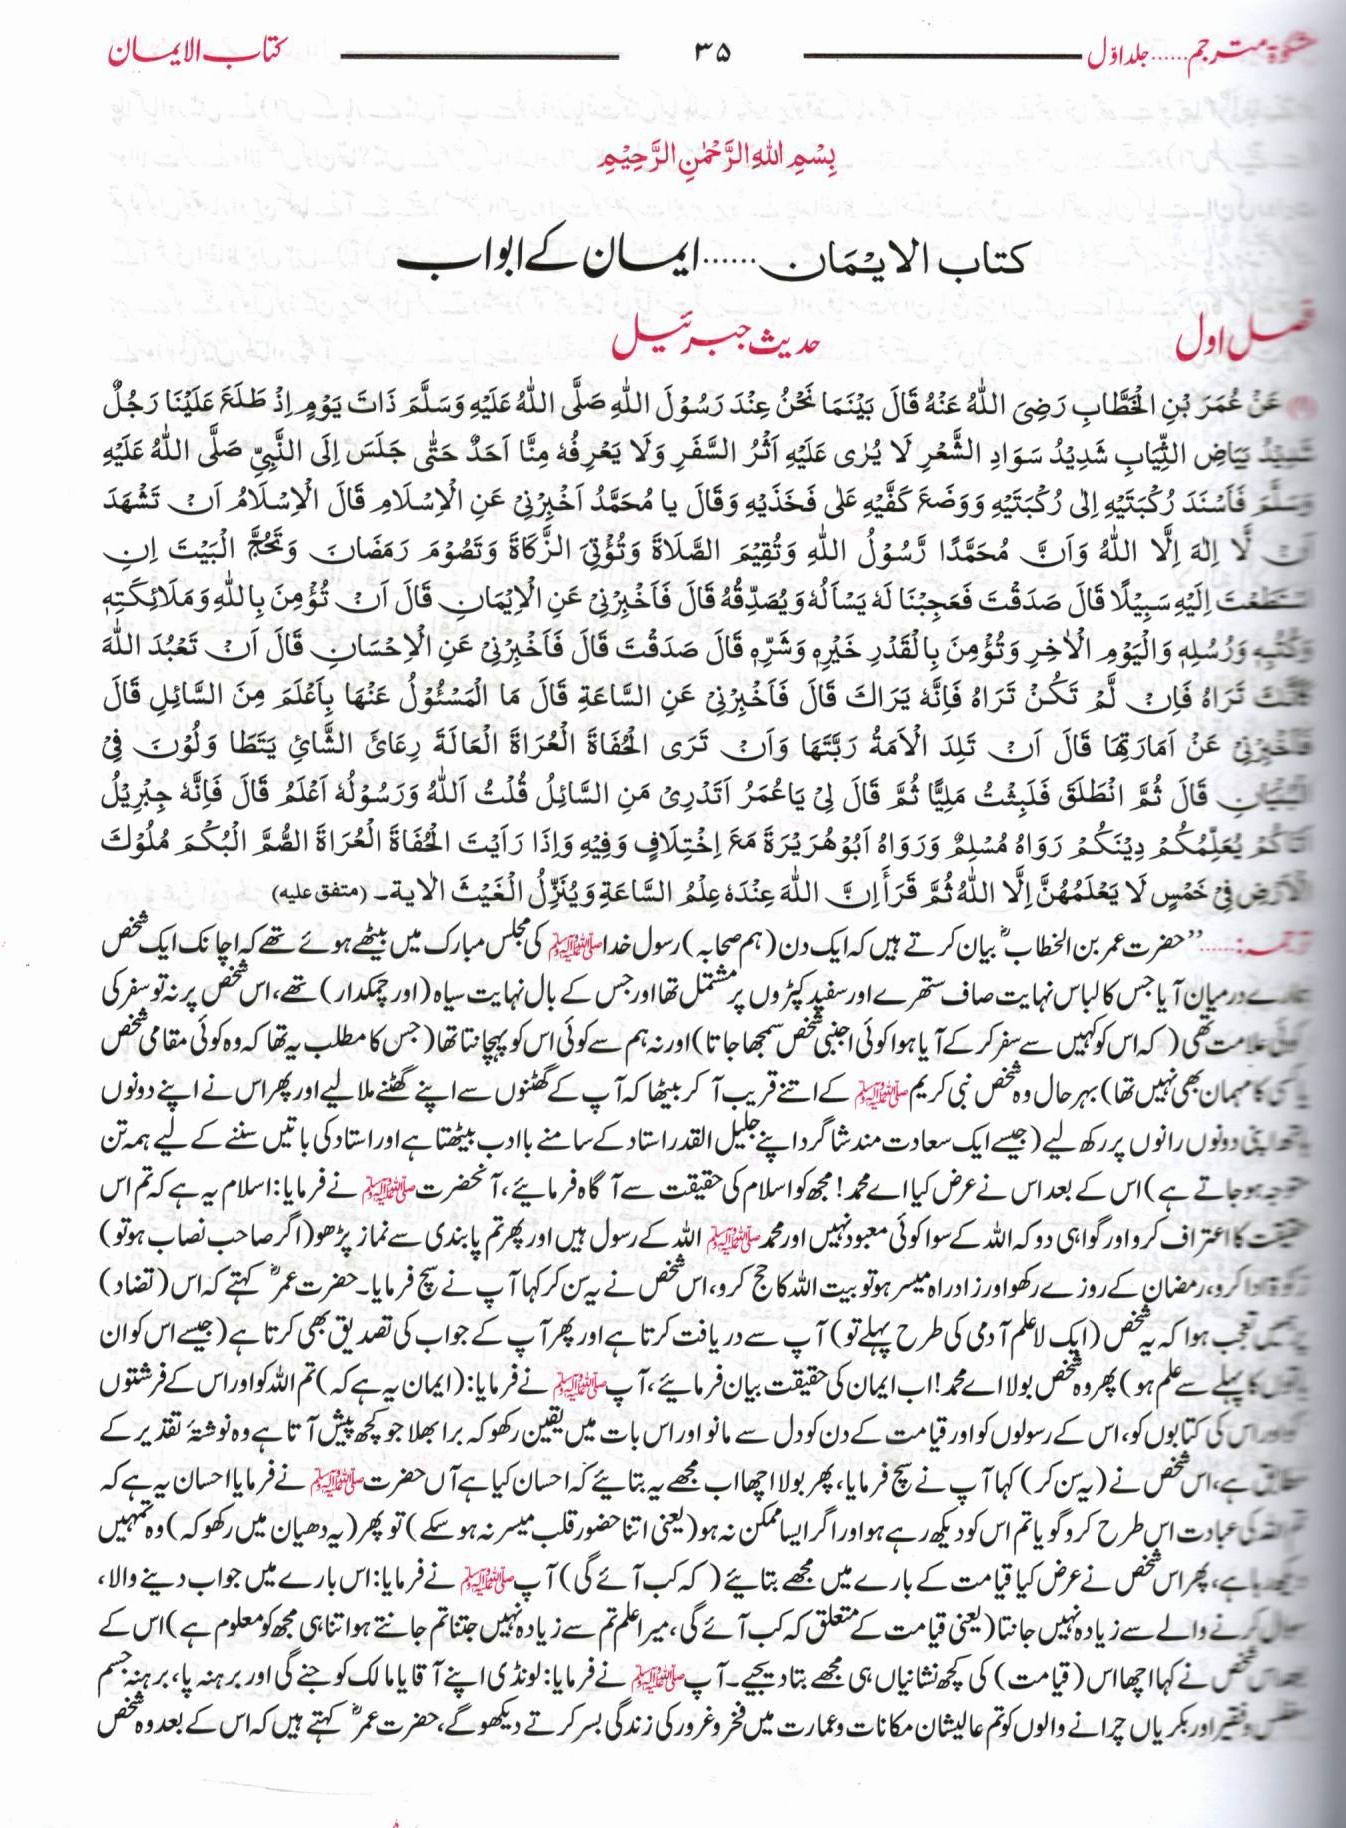 مشکوٰۃ مترجم......جلد اوّل ۳۵ کتاب الایمان
بِسْمِ اللهِ الرَّحْمٰنِ الرَّحِيْمِ
کتاب الایْمَان......ایمان کے ابواب
فصل اول حدیث جبرئیل
عَنْ عُمَرَ بْنِ الْخَطَّابِ رَضِىَ اللّٰهُ عَنْهُ قَالَ بَيْنَمَا نَحْنُ عِنْدَ رَسُوْلَ اللّٰهِ صَلَّى اللّٰهُ عَلَيْهِ وَسَلَّمَ ذَاتَ يَوْمٍ اِذْ طَلَعَ عَلَيْنَا رَجُلٌ
شَدِيْدُ بَيَاضِ الثِّيَابِ شَدِيْدُ سَوَادِ الشَّعْرِ لَا يُرٰى عَلَيْهِ اَثْرُ السَّفَرِ وَلَا يَعْرِفُهٗ مِنَّا اَحَدٌ حَتّٰى جَلَسَ اِلَى النَّبِيِّ صَلَّى اللّٰهُ عَلَيْهِ
وَسَلَّمَ فَاَسْنَدَ رُكْبَتَيْهِ اِلٰى رُكْبَتَيْهِ وَوَضَعَ كَفَّيْهِ عَلٰى فَخَذَيْهِ وَقَالَ يا مُحَمَّدُ اَخْبِرْنِىْ عَنِ الْاِسْلَامِ قَالَ الْاِسْلَامُ اَنْ تَشْهَدَ
اَنْ لَّا اِلٰهَ اِلَّا اللّٰهُ وَاَنَّ مُحَمَّدًا رَّسُوْلُ اللّٰهِ وَتُقِيْمَ الصَّلَاةَ وَتُؤْتِىَ الزَّكَاةَ وَتَصُوْمَ رَمَضَانَ وَتَحُجَّ الْبَيْتَ اِنِ
اسْتَطَعْتَ اِلَيْهِ سَبِيْلًا قَالَ صَدَقْتَ فَعَجِبْنَا لَهٗ يَسْاَلُهٗ وَيُصَدِّقُهٗ قَالَ فَاَخْبِرْنِىْ عَنِ الْاِيْمَانِ قَالَ اَنْ تُؤْمِنَ بِاللّٰهِ وَمَلَائِكَتِهٖ
وَكُتُبِهٖ وَرُسُلِهٖ وَالْيَوْمِ الْاٰخِرِ وَتُؤْمِنَ بِالْقَدْرِ خَيْرِهٖ وَشَرِّهٖ قَالَ صَدَقْتَ قَالَ فَاَخْبِرْنِىْ عَنِ الْاِحْسَانِ قَالَ اَنْ تَعْبُدَ اللّٰهَ
كَاَنَّكَ تَرَاهُ فَاِنْ لَّمْ تَكُنْ تَرَاهُ فَاِنَّهٗ يَرَاكَ قَالَ فَاَخْبِرْنِىْ عَنِ السَّاعَةِ قَالَ مَا الْمَسْئُوْلُ عَنْهَا بِاَعْلَمَ مِنَ السَّائِلِ قَالَ
فَاَخْبِرْنِىْ عَنْ اَمَارَتِهَا قَالَ اَنْ تَلِدَ الْاَمَةُ رَبَّتَهَا وَاَنْ تَرَى الْحُفَاةَ الْعُرَاةَ الْعَالَةَ رِعَائَ الشَّائِ يَتَطَا وَلُوْنَ فِىْ
الْبُنْيَانِ قَالَ ثُمَّ انْطَلَقَ فَلَبِثْتُ مَلِيًّا ثُمَّ قَالَ لِىْ يَاعُمَرُ اَتَدْرِىْ مَنِ السَّائِلُ قُلْتُ اَللّٰهُ وَرَسُوْلُهٗ اَعْلَمُ قَالَ فَاِنَّهٗ جِبْرِيْلُ
اَتَاكُمْ يُعَلِّمُكُمْ دِيْنَكُمْ رَوَاهُ مُسْلِمٌ وَرَوَاهُ اَبُوْهُرَيْرَةَ مَعَ اخْتِلَافٍ وَفِيْهِ وَاِذَا رَاَيْتَ الْحُفَاةَ الْعُرَاةَ الصُّمَّ الْبُكْمَ مُلُوْكَ
الْاَرْضِ فِىْ خَمْسٍ لَا يَعْلَمُهُنَّ اِلَّا اللّٰهُ ثُمَّ قَرَأَ اِنَّ اللّٰهَ عِنْدَهٗ عِلْمُ السَّاعَةِ وَيُنَزِّلُ الْغَيْثَ الْاٰية۔ (متفق عليه)
ترجمہ:......”حضرت عمر بن الخطابؓ بیان کرتے ہیں کہ ایک دن (ہم صحابہ) رسول خدا ﷺ کی مجلس مبارک میں بیٹھے ہوئے تھے کہ اچانک ایک شخص
ہمارے درمیان آیا جس کا لباس نہایت صاف ستھرے اور سفید کپڑوں پر مشتمل تھا اور جس کے بال نہایت سیاہ (اور چمکدار) تھے، اس شخص پر نہ تو سفر کی
کوئی علامت تھی (کہ اس کو کہیں سے سفر کر کے آیا ہوا کوئی اجنبی شخص سمجھا جاتا) اور نہ ہم سے کوئی اس کو پہچانتا تھا (جس کا مطلب یہ تھا کہ وہ کوئی مقامی شخص
یا کسی کا مہمان بھی نہیں تھا) بہر حال وہ شخص نبی کریم ﷺ کے اتنے قریب آ کر بیٹھا کہ آپ کے گھٹنوں سے اپنے گھٹنے ملالیے اور پھر اس نے اپنے دونوں
ہاتھ اپنی دونوں رانوں پر رکھ لیے (جیسے ایک سعادت مند شاگرد اپنے جلیل القدر استاد کے سامنے باادب بیٹھتا ہے اور استاد کی باتیں سننے کے لیے ہمہ تن
متوجہ ہو جاتے ہے) اس کے بعد اس نے عرض کیا اے محمد! مجھ کو اسلام کی حقیقت سے آگاہ فرمائیے، آنحضرت ﷺ نے فرمایا: اسلام یہ ہے کہ تم اس
حقیقت کا اعتراف کرو اور گواہی دو کہ اللہ کے سوا کوئی معبود نہیں اور محمد ﷺ اللہ کے رسول ہیں اور پھر تم پابندی سے نماز پڑھو (اگر صاحب نصاب ہو تو)
زکوٰۃ ادا کرو، رمضان کے روزے رکھو اور زادراہ میسر ہو تو بیت اللہ کا حج کرو، اس شخص نے یہ سن کر کہا آپ نے سچ فرمایا۔ حضرت عمرؓ کہتے کہ اس (تضاد)
پر ہمیں تعجب ہوا کہ یہ شخص (ایک لاعلم آدمی کی طرح پہلے تو) آپ سے دریافت کرتا ہے اور پھر آپ کے جواب کی تصدیق بھی کرتا ہے (جیسے اس کو ان
باتوں کا پہلے سے علم ہو) پھر وہ شخص بولا اے محمد! اب ایمان کی حقیقت بیان فرمائیے، آپ ﷺ نے فرمایا: (ایمان یہ ہے کہ) تم اللہ کو اور اس کے فرشتوں
کو اور اس کی کتابوں کو، اس کے رسولوں کو اور قیامت کے دن کو دل سے مانو اور اس بات میں یقین رکھو کہ برا بھلا جو کچھ پیش آتا ہے وہ نوشتۂ تقدیر کے
مطابق ہے، اس شخص نے (یہ سن کر) کہا آپ نے سچ فرمایا، پھر بولا اچھا اب مجھے یہ بتائیے کہ احسان کیا ہے آں حضرت ﷺ نے فرمایا احسان یہ ہے کہ
تم اللہ کی عبادت اس طرح کرو گویا تم اس کو دیکھ رہے ہو اور اگر ایسا ممکن نہ ہو (یعنی اتنا حضور قلب میسر نہ ہو سکے) تو پھر (یہ دھیان میں رکھو کہ) وہ تمہیں
دیکھ رہا ہے، پھر اس شخص نے عرض کیا قیامت کے بارے میں مجھے بتائیے (کہ کب آئے گی) آپ ﷺ نے فرمایا: اس بارے میں جواب دینے والا،
سوال کرنے والے سے زیادہ نہیں جانتا (یعنی قیامت کے متعلق کہ کب آئے گی، میرا علم تم سے زیادہ نہیں جتنا تم جانتے ہو اتنا ہی مجھ کو معلوم ہے) اس کے
بعد اس شخص نے کہا اچھا اس (قیامت) کی کچھ نشانیاں ہی مجھے بتا دیجیے۔ آپ ﷺ نے فرمایا: لونڈی اپنے آقا یا مالک کو جنے گی اور برہنہ پا، برہنہ جسم
مفلس و فقیر اور بکریاں چرانے والوں کو تم عالیشان مکانات و عمارت میں فخر و غرور کی زندگی بسر کرتے دیکھو گے، حضرت عمرؓ کہتے ہیں کہ اس کے بعد وہ شخص